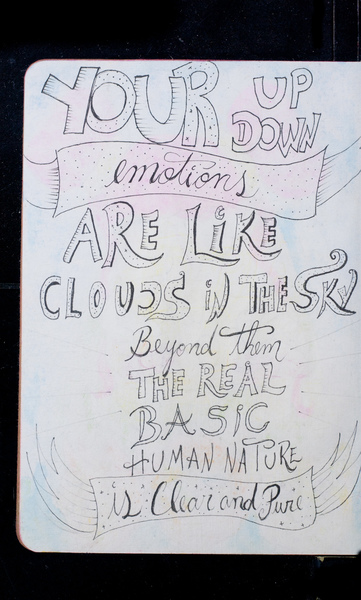 YOUR UP
DOWN
emotions
ARE LiKE
CLOUDS iN THE SKY
Beyond them
THE REAL
BASiC
HUMAN NATURE
is Clear and Pure